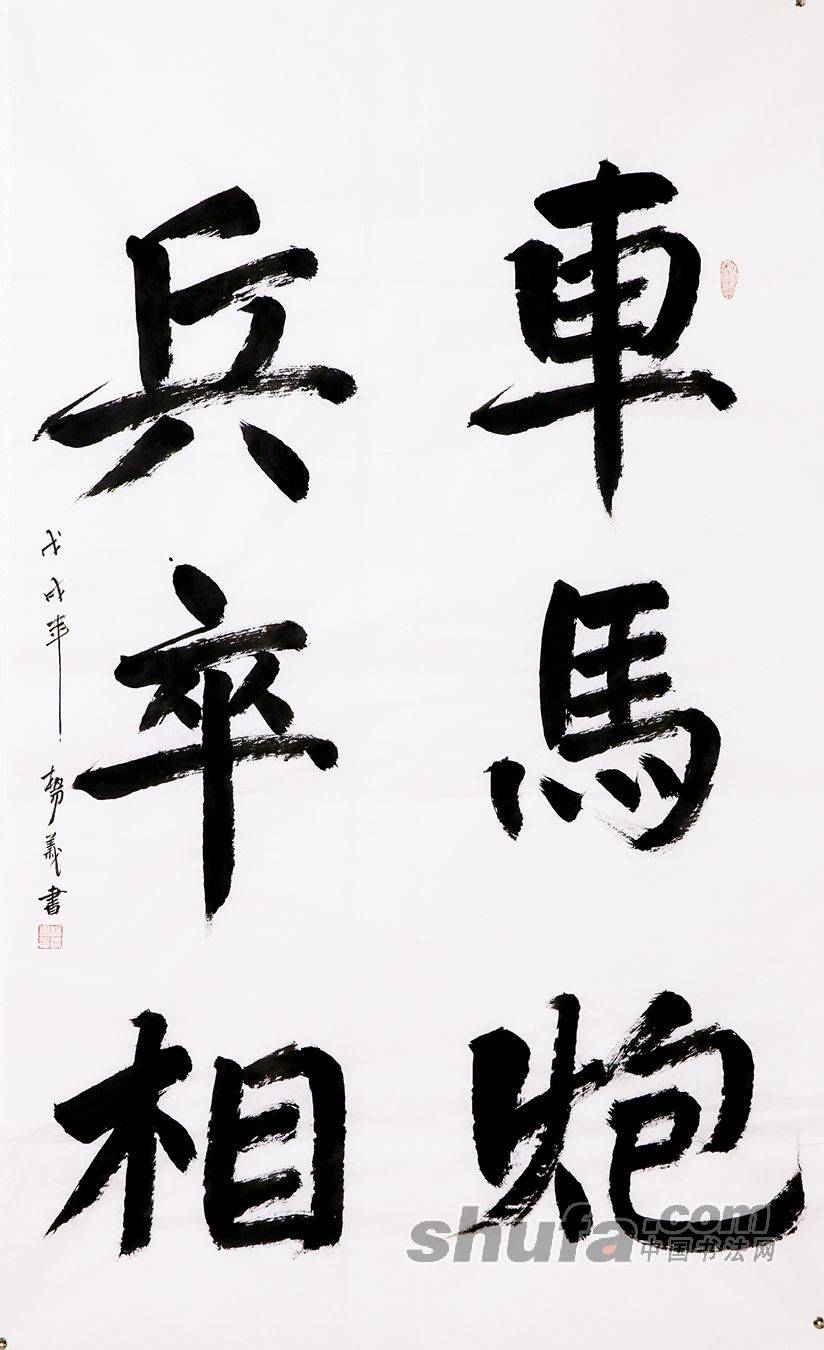 車馬炮
兵卒相
戊戌年 勢義書
shufa.com
中国书法网